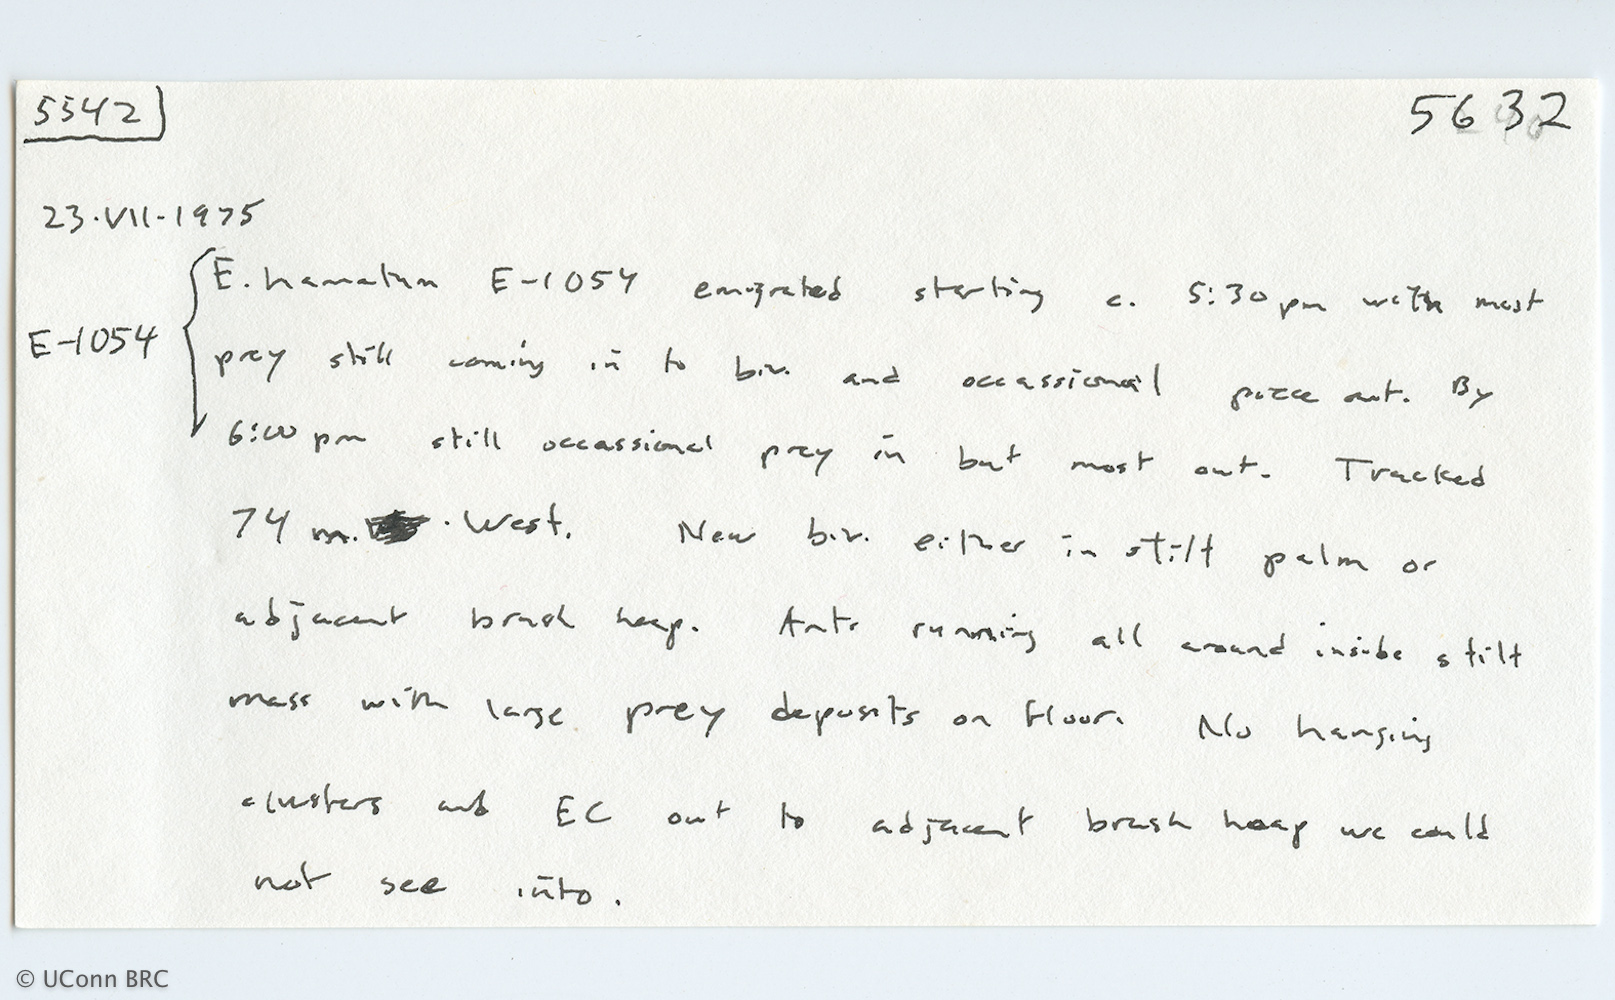 5542
5632
23·VII-1975
E-1054
E. hamatum E-1054 emigrated starting c. 5:30 pm with most
prey still coming in to biv. and occassional piece out. By
6:00 pm still occassional prey in but most out. Tracked
74 m. West. New biv. either in stilt palm or
adjacent brush heap. Ants running all around inside stilt
mass with large prey deposits on floor. No hanging
clusters and EC out to adjacent brush heap we could
not see into.
© UConn BRC